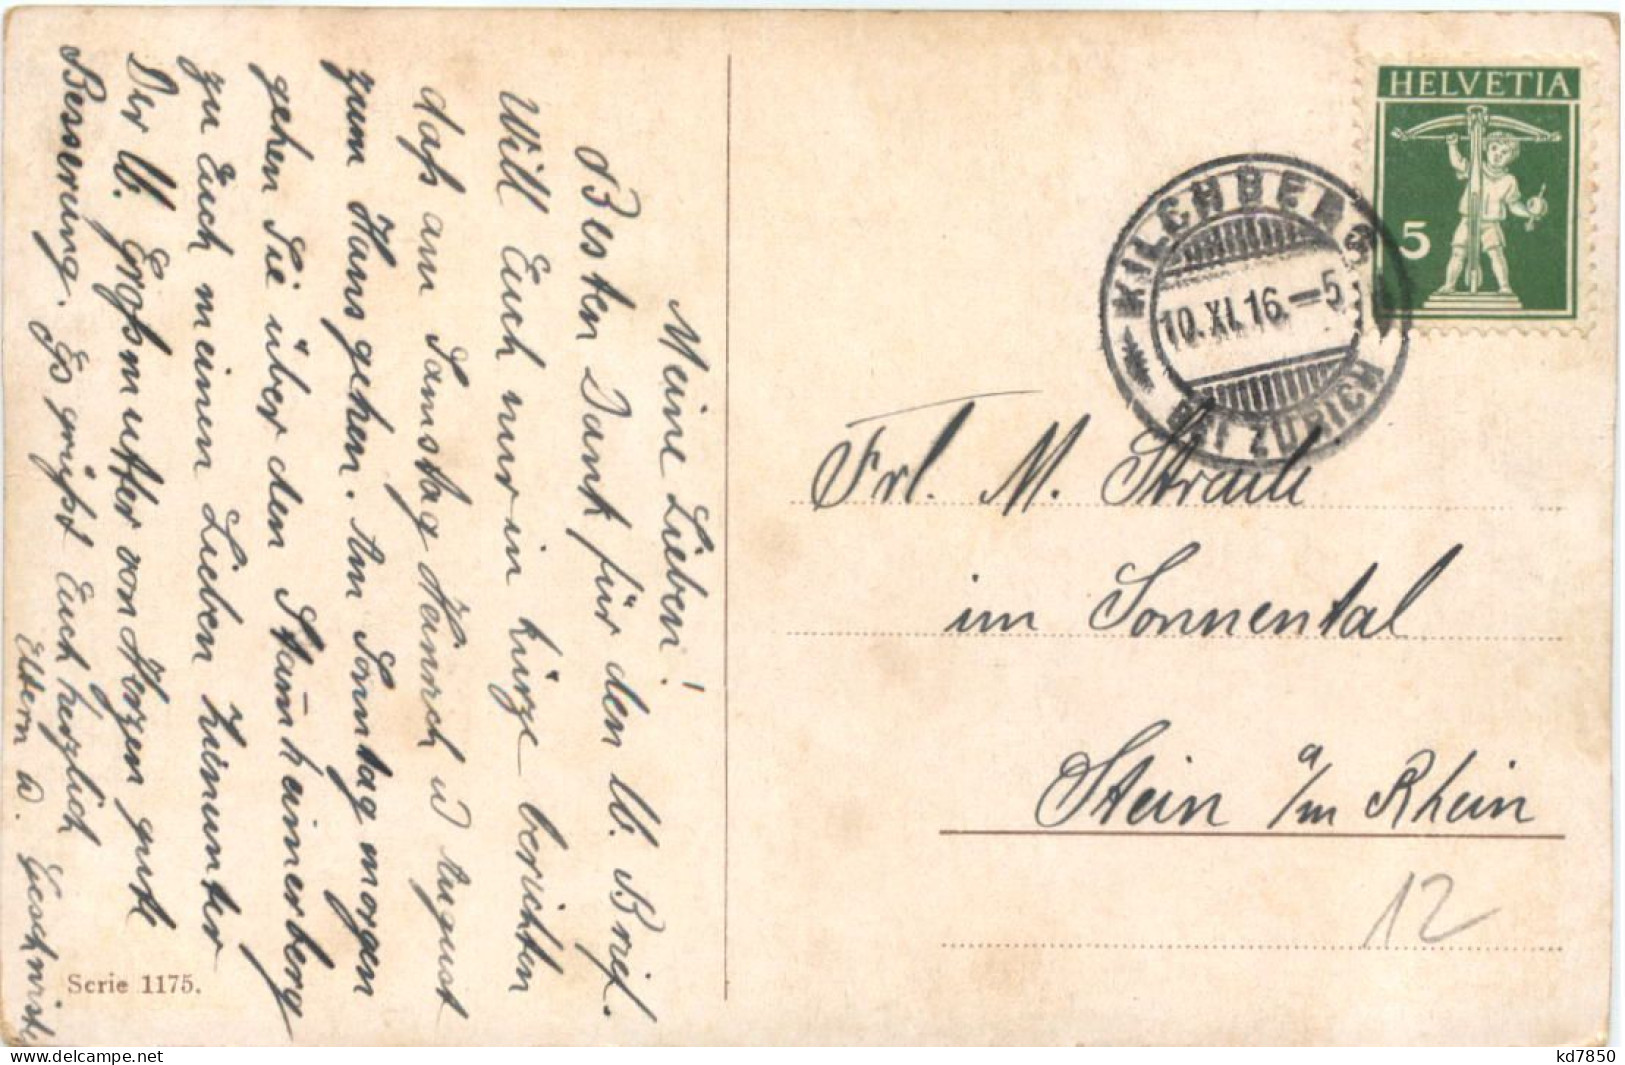 Meine Lieben!
Besten Dank für den lb. Brief.
Will Euch nur in kürze berichten
daß am Samstag Heinrich u August
zum Haus gehen. Am Sonntag morgen
gehen Sie über den Stam̄heimerberg
zu Euch meinen Lieben hinunter
Der lb. Großmutter von Herzen gute
Besserung. Es grüßt Euch herzlich
Eltern u. Geschwister
Serie 1175.
HELVETIA
5
KILCHBERG
10.XI.16.-5
BEI ZÜRICH
Frl. M.
im Sonnental
Stein a/m Rhein
12
delcampe.net
kd7850